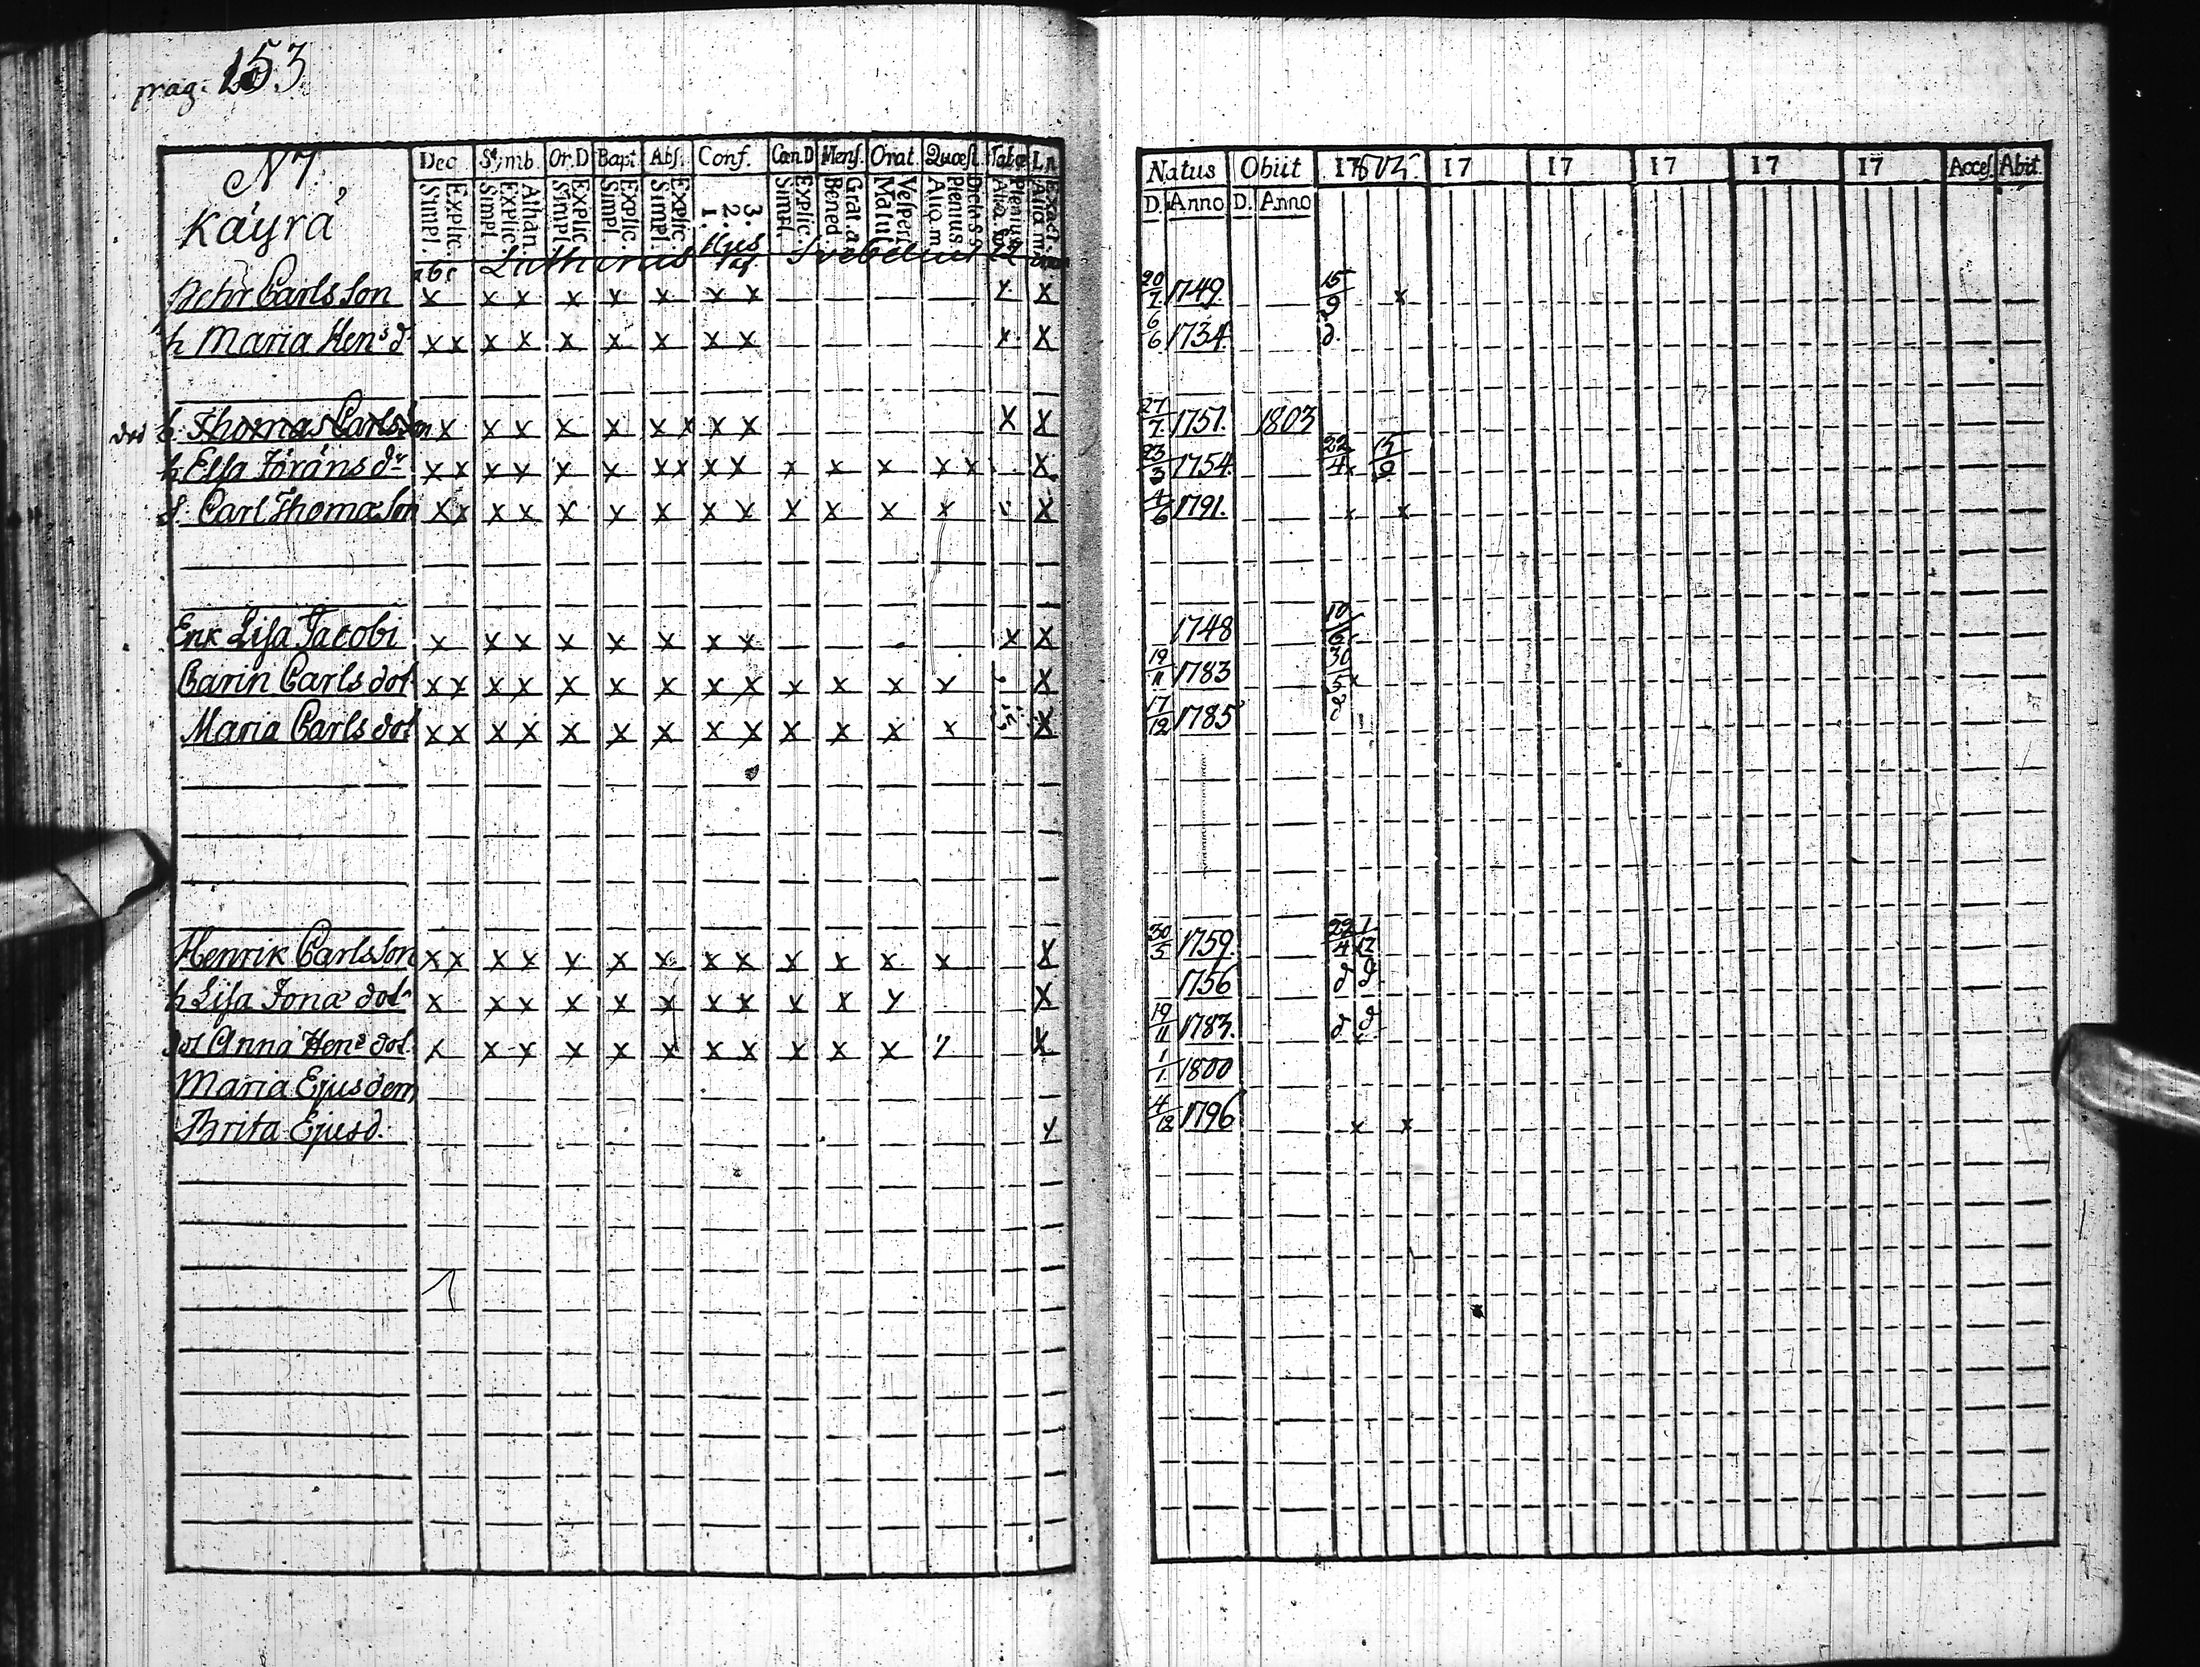 pag. 153
N 7.
Käyrä
Dec Symb. Or.D Bapt Abs. Conf. Cœn.D Mens. Orat. Quæst. Tabœ L.n
Explic. Simpl. Athan. Explic. Simpl. Explic. Simpl. Explic. Simpl. Explic. Simpl. 3. 2. 1. Explic. Simpl. Grat. a. Bened Vesper. Matut Plenius. Aliq. m. Plenius Aliq. Exact. Aliq. m.
abc Lutherus Svebelius
Natus Obiit 1802. 17 17 17 17 17 Acces. Abit.
D. Anno D. Anno
Pehr Carls son x x x x x x x x x x 20/7 1749. 15/9 x
h Maria Hens d. x x x x x x x x x x x 6/6 1734 d.
död b. Thomas Carlsson x x x x x x x x x x 27/7 1751. 1803
h Elsa Jöräns dr x x x x x x x x x x x x x x x x x 23/3 1754 22/4 x 15/9
S. Carl Thomæ son x x x x x x x x x x x x x x 4/6 1791. x x
Enk Lisa Jacobi x x x x x x x x x x 1748 10/6
Carin Carls dot x x x x x x x x x x x x x x 19/11 1783 30/5 x
Maria Carls dot x x x x x x x x x x x x x x 17/12 1785 d
Henrik Carlsson x x x x x x x x x x x x x x 30/5 1759. 22/4 x 1/12
h Lisa Jonæ dotr x x x x x x x x x x x x 1756 d d.
dot Anna Hens dot. x x x x x x x x x x x x x 19/11 1783. d d
Maria Ejusdem 1/1 1800
Brita Ejusd. x 4/12 1796 x x